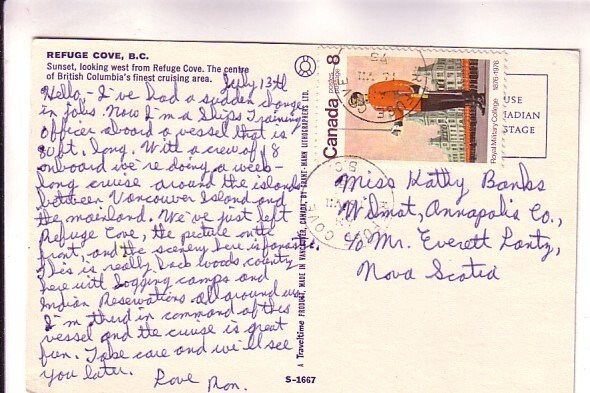 REFUGE COVE, B.C.
Sunset, looking west from Refuge Cove. The centre
of British Columbia's finest cruising area.
July 13th
Hello - I've had a sudden change
in jobs. Now I'm a Ships Training
Officer aboard a vessel that is
80 ft. long. With a crew of 18
onboard we're doing a week-
long cruise around the islands
between Vancouver Island and
the mainland. We've just left
Refuge Cove, the picture on the
front, and the scenery here is fantastic.
This is really back woods country
here with logging camps and
Indian Reservations all around us.
I'm third in command of this
vessel and the cruise is great
fun. Take care and we'll see
you later.
Love Ron.
A Traveltime PRODUCT, MADE IN VANCOUVER, CANADA, BY GRANT-MANN LITHOGRAPHERS LTD.
S-1667
Canada 8
postes postage
Royal Military College 1876-1976
REFUGE COVE
B.C.
USE
ADIAN
STAGE
Miss Kathy Banks
Wilmot, Annapolis Co.,
c/o Mr. Everett Lantz,
Nova Scotia